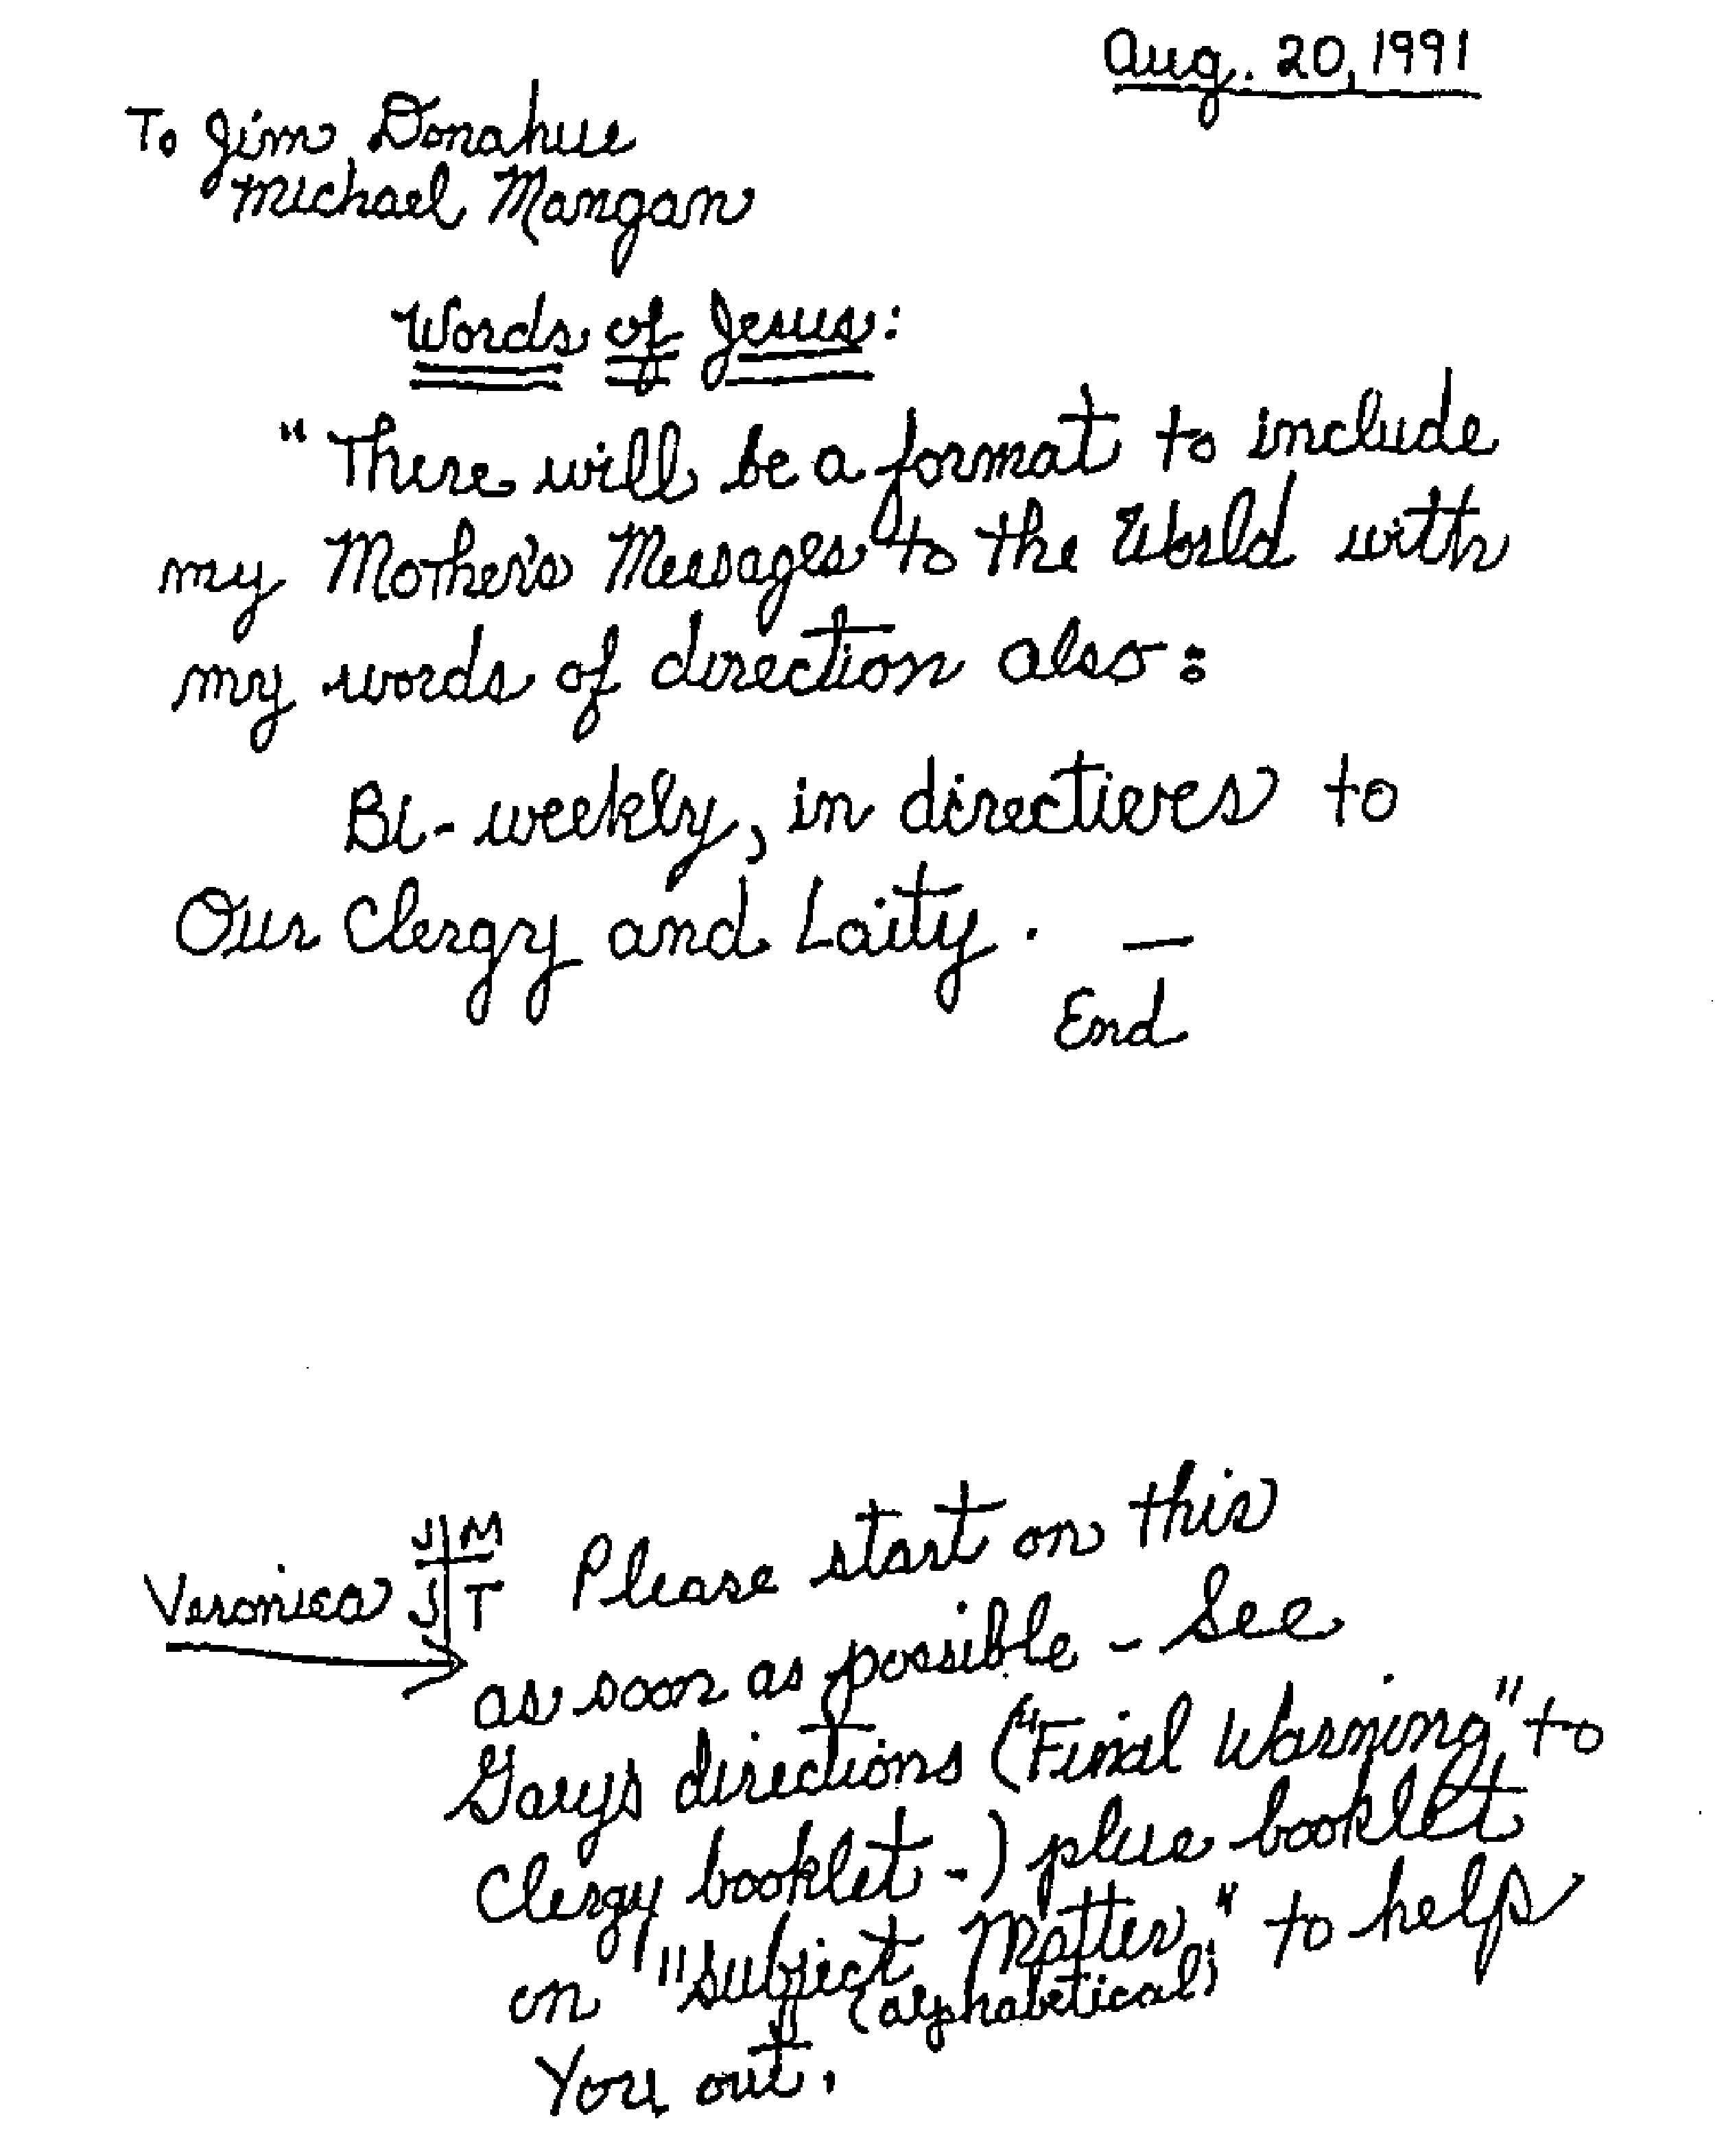 Aug. 20, 1991
To Jim Donahue
Michael Mangan
Words of Jesus:
"There will be a format to include
my Mother's Messages to the World with
my words of direction also:
Bi-weekly, in directives to
Our Clergy and Laity. —
End
J M
Veronica J T Please start on this
as soon as possible - See
Garys directions ("Final Warning" to
Clergy booklet -) plus booklet
on "Subject Matter" to help
(alphabetical)
You out.